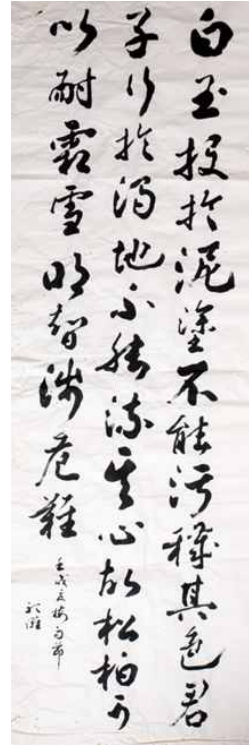 白玉投於泥塗不能污穢其色君
子行於濁地不能染其心故松柏可
以耐霜雪明智涉危難
壬戌之梅雨節